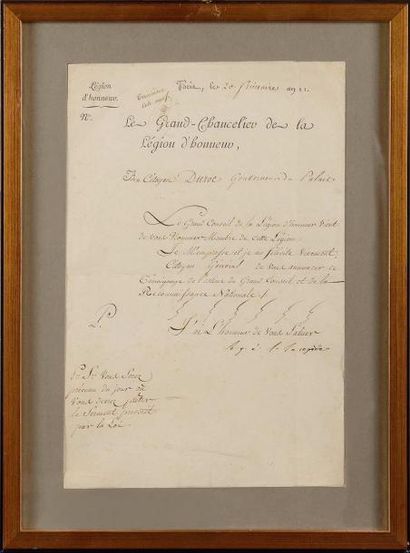 Légion
d'honneur.
Paris, le 20 frimaire an
N°.
Le Grand-Chancelier de la
Légion d'honneur,
Au Citoyen Duroc Gouverneur du Palais.
Le Grand Conseil de la Légion d'honneur vient
de vous Nommer Membre de cette Légion.
Je M'empresse et je me félicite vivement
Citoyen Général de vous annoncer ce
Témoignage de l'estime du Grand Conseil et de la
Reconnaissance Nationale.
J'ai L'honneur de Vous Saluer
P. S. Vous Serez
prévenu du jour où
vous devrez prêter
le Serment prescrit
par la Loi